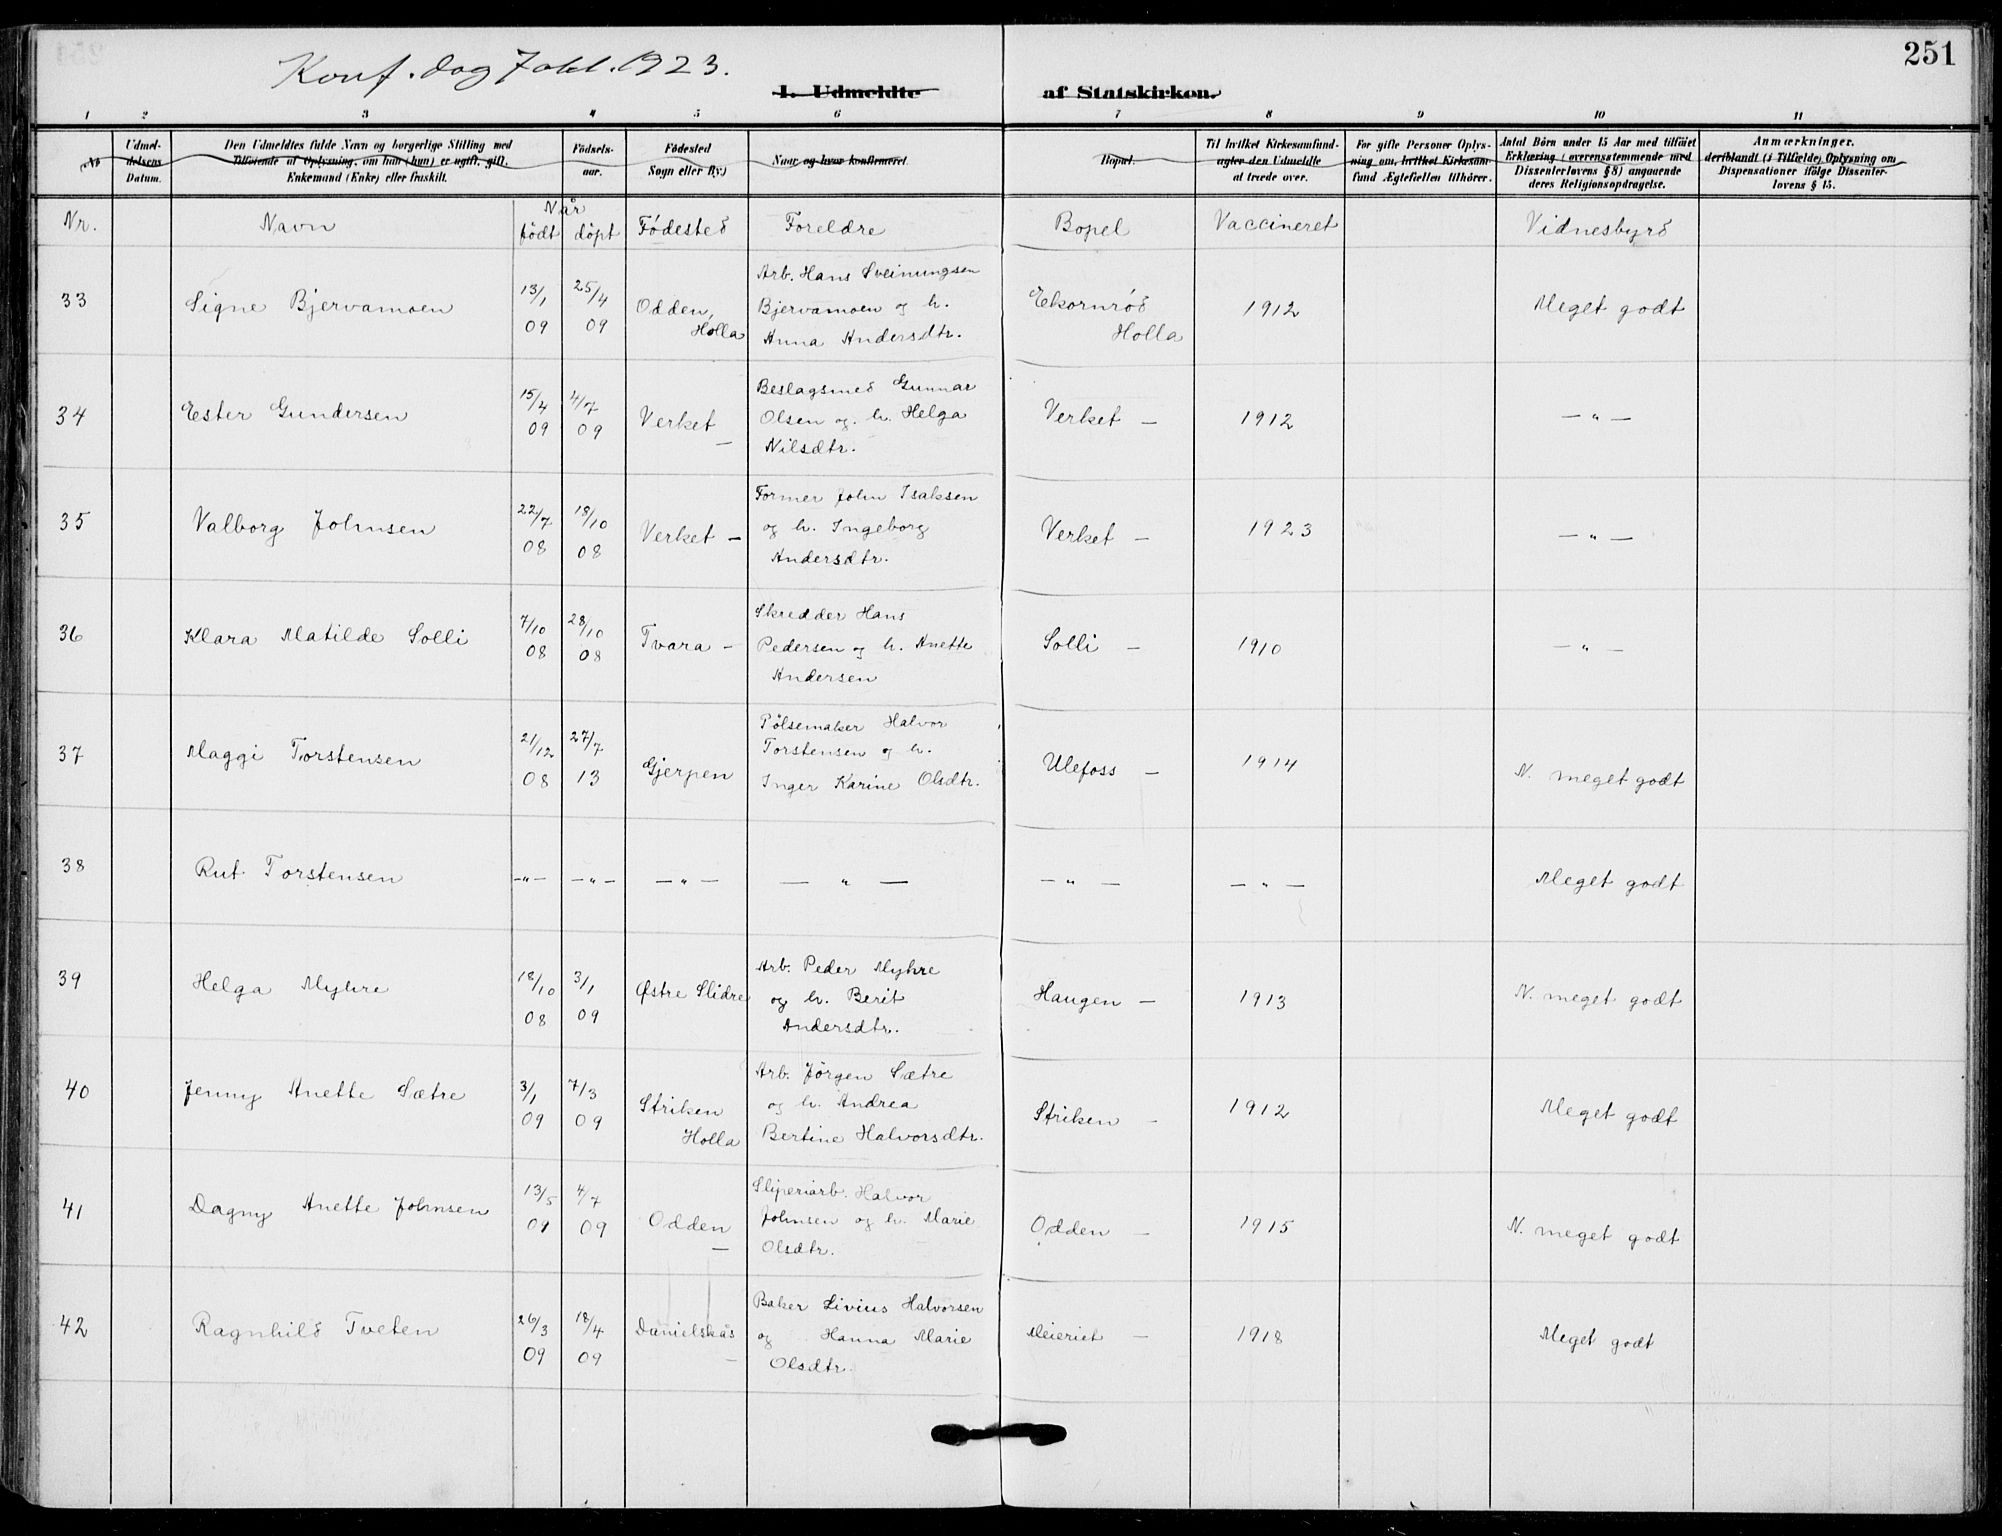 251
Konf. dag 7 okt. 1923.
1. Udmeldte af Statskirken.
1 2 3 4 5 6 7 8 9 10 11
No
Udmel-
delsens
Datum.
Den Udmeldtes fulde Navn og borgerlige Stilling med
Tilføiende af Oplysning, om han (hun) er ugift, gift,
Enkemand (Enke) eller fraskilt.
Fødsels-
aar.
Fødested
Sogn eller By.)
Naar og hvor konfirmeret.
Bopæl.
Til hvilket Kirkesamfund
agter den Udmeldte
at træde over.
For gifte Personer Oplys-
ning om, hvilket Kirkesam-
fund Ægtefællen tilhører.
Antal Børn under 15 Aar med tilføiet
Erklæring (overensstemmende med
Dissenterlovens § 8) angaaende
deres Religionsopdragelse.
Anmærkninger.
deriblandt (i Tilfælde) Oplysning om
Dispensationer ifølge Dissenter-
lovens § 15.
Nr. Navn Når født døpt Fødested Foreldre Bopel Vaccineret Vidnesbyrd
33 Signe Bjervamoen 13/1 09 25/4 09 Odden, Holla
Arb. Hans Sveinungsen
Bjervamoen og h.
Anna Andersdtr.
Ekornrød Holla 1912 Meget godt
34 Ester Gundersen 15/4 09 4/7 09 Verket —
Beslagsmed Gunnar
Olsen og h. Helga
Nilsdtr.
Verket — 1912 — " —
35 Valborg Johnsen 22/7 08 18/10 08 Verket —
Former John Isaksen
og h. Ingeborg
Andersdtr.
Verket — 1923 — " —
36 Klara Matilde Solli 7/10 08 28/10 08 Tvara —
Skredder Hans
Pedersen og h. Anette
Andersen
Solli — 1910 — " —
37 Maggi Torstensen 21/12 08 27/7 13 Gjerpen
Pølsemaker Halvor
Torstensen og h.
Inger Karine Olsdtr.
Ulefoss — 1914 N. meget godt
38 Rut Torstensen — " — — " — — " — — " — — " — — " — Meget godt
39 Helga Myhre 18/10 08 3/1 09 Østre Slidre
Arb. Peder Myhre
og h. Berit
Andersdtr.
Haugen — 1913 N. meget godt
40 Jenny Anette Sætre 3/1 09 7/3 09 Striken Holla
Arb. Jørgen Sætre
og h. Andrea
Bertine Halvorsdtr.
Striken — 1912 Meget godt
41 Dagny Anette Johnsen 13/5 09 4/7 09 Odden —
Sliperiarb. Halvor
Johnsen og h. Marie
Olsdtr.
Odden — 1915 N. meget godt
42 Ragnhild Tveten 26/3 09 18/4 09 Danielskås —
Baker Livius Halvorsen
og Hanna Marie
Olsdtr.
Meieriet — 1918 Meget godt